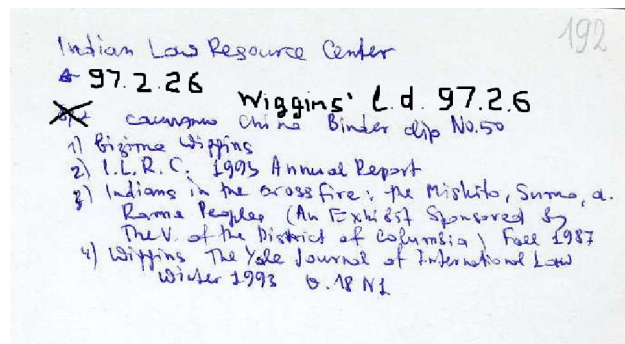 192
Indian Law Resource Center
97.2.26
Wiggins' L.d. 97.2.6
China Binder clip No.50
1) Wiggins
2) I.L.R.C. 1993 Annual Report
3) Indians in the crossfire: the Miskito, Sumo, a.
Rama Peoples (An Exhibit Sponsored by
The V. of the District of Columbia) Fall 1987
4) Wiggins The Yale Journal of International Law
Winter 1993 v. 18 N1.